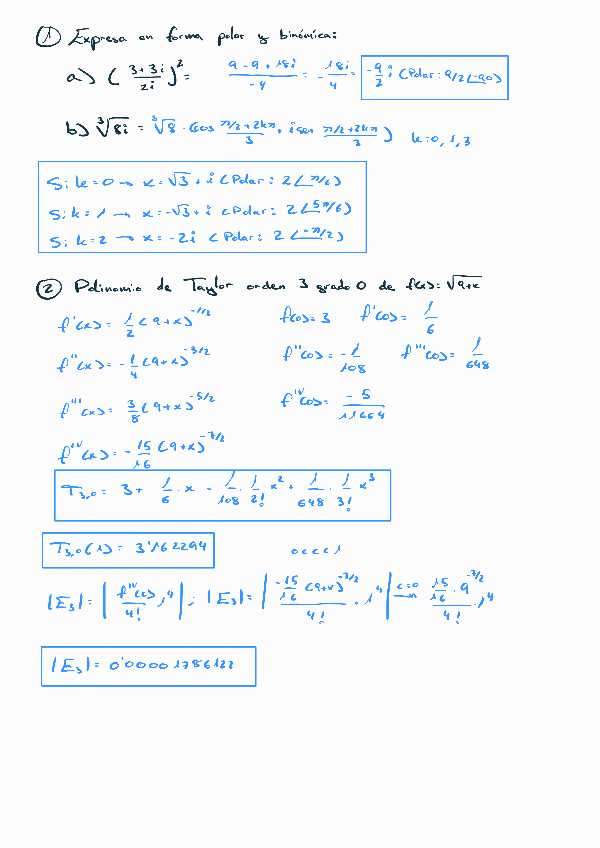 ① Expresa en forma polar y binómica:
a) ((3+3i)/(2i))² = (9-9+18i)/(-4) = -18i/4 = -9/2 i (Polar: 9/2 ∠-90)
b) ∛8i = ∛8 · (cos (π/2+2kπ)/3 + i sen (π/2+2kπ)/3) k=0,1,3
Si k=0 → x=√3+i (Polar: 2∠π/6)
Si k=1 → x=-√3+i (Polar: 2∠5π/6)
Si k=2 → x=-2i (Polar: 2∠-π/2)
② Polinomio de Taylor orden 3 grado 0 de f(x)=√9+x
f'(x)= 1/2 (9+x)^-1/2 f(0)=3 f'(0)= 1/6
f''(x)= -1/4 (9+x)^-3/2 f''(0)= -1/108 f'''(0)= 1/648
f'''(x)= 3/8 (9+x)^-5/2 f^IV(0)= -5/11664
f^IV(x)= -15/16 (9+x)^-7/2
T₃,₀ = 3+ 1/6 · x - 1/108 · 1/2! x² + 1/648 · 1/3! x³
T₃,₀(1) = 3'162294 0<c<1
|E₃| = |f^IV(c)/4! · 1⁴| ; |E₃| = |(-15/16 (9+x)^-7/2)/4! · 1⁴| c=0 → (15/16 · 9^-7/2)/4! · 1⁴
|E₃| = 0'00001786122